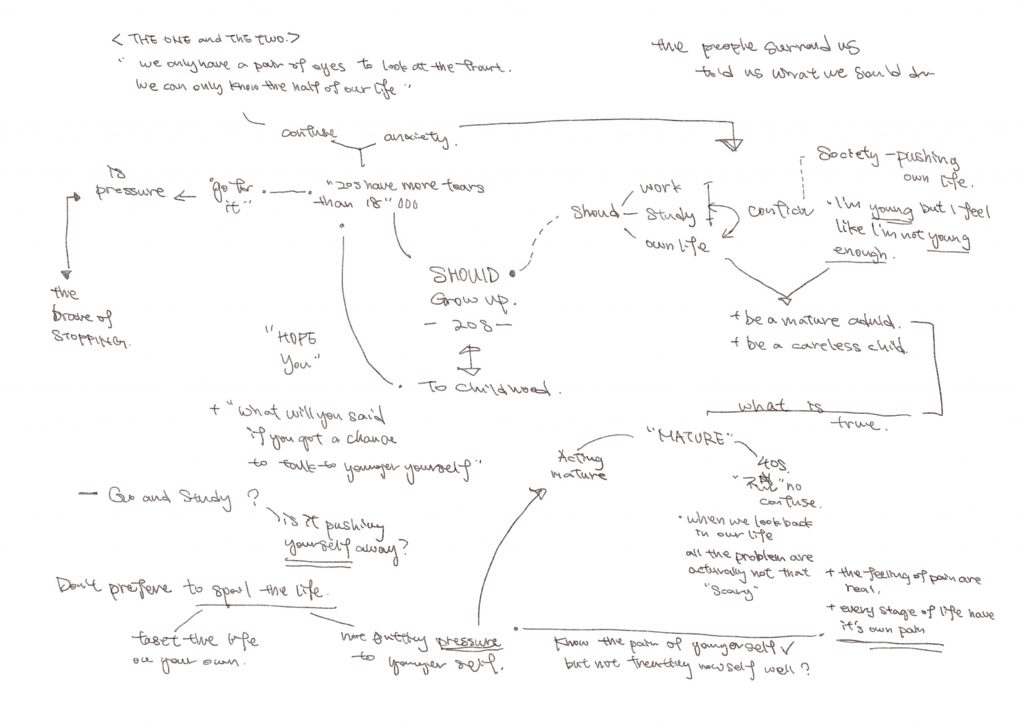 < THE ONE and THE TWO.>
" we only have a pair of eyes to look at the front.
We can only know the half of our life "
the people surround us
told us what we sould do
confuse
anxiety.
Society - pushing
own life.
is
pressure
"go for
it"
"20s have more tears
than 18" ooo
Shoud
work
Study
own life
conflict
• I'm young but I feel
like I'm not young
enough.
SHOUID
Grow up.
- 20s -
the
brave of
STOPPING.
"HOPE
You"
+ be a mature aduld.
+ be a careless child.
To childwood.
what is
true.
+ "what will you said
if you got a change
to talk to younger yourself"
"MATURE"
Acting
mature
40s.
"不惑" no
confuse.
- Go and Study ?
is it pushing
yourself away?
• when we look back
in our life
all the problem are
acturally not that
"Scary"
+ the feeling of pain are
real.
+ every stage of life have
it's own pain
Don't prefere to sporl the life.
taset the life
on your own.
not putting pressure
to younger self.
Know the pain of younger self ✓
but not treatting now self well?